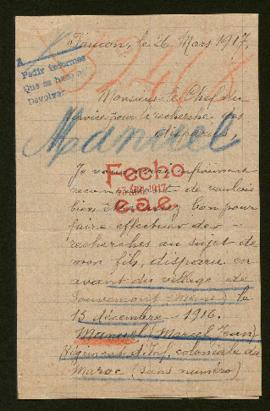 le 26 Mars 1917.
A
Pedir informes
Que se haga
Devolver
Monsieur le Chef du
service pour la recherche des
disparus
Manuel
Je vous serais infiniment
Fecho
reconnaissant de vouloir
1917
bien
bon pour
e.a.e.
faire effectuer des
recherches au sujet de
mon fils, disparu en
avant du village de
Louvemont (Meuse) le
15 décembre 1916.
Manuel (Marcel Jean)
Régiment d'Inf. coloniale du
Maroc (sans numéro)